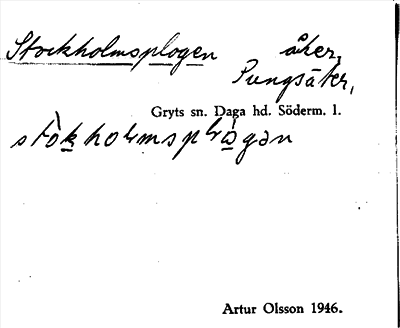 Stockholmsplogen åker,
Pungsäter,
Gryts sn. Daga hd. Söderm. l.
stòkholmsplågan
Artur Olsson 1946.